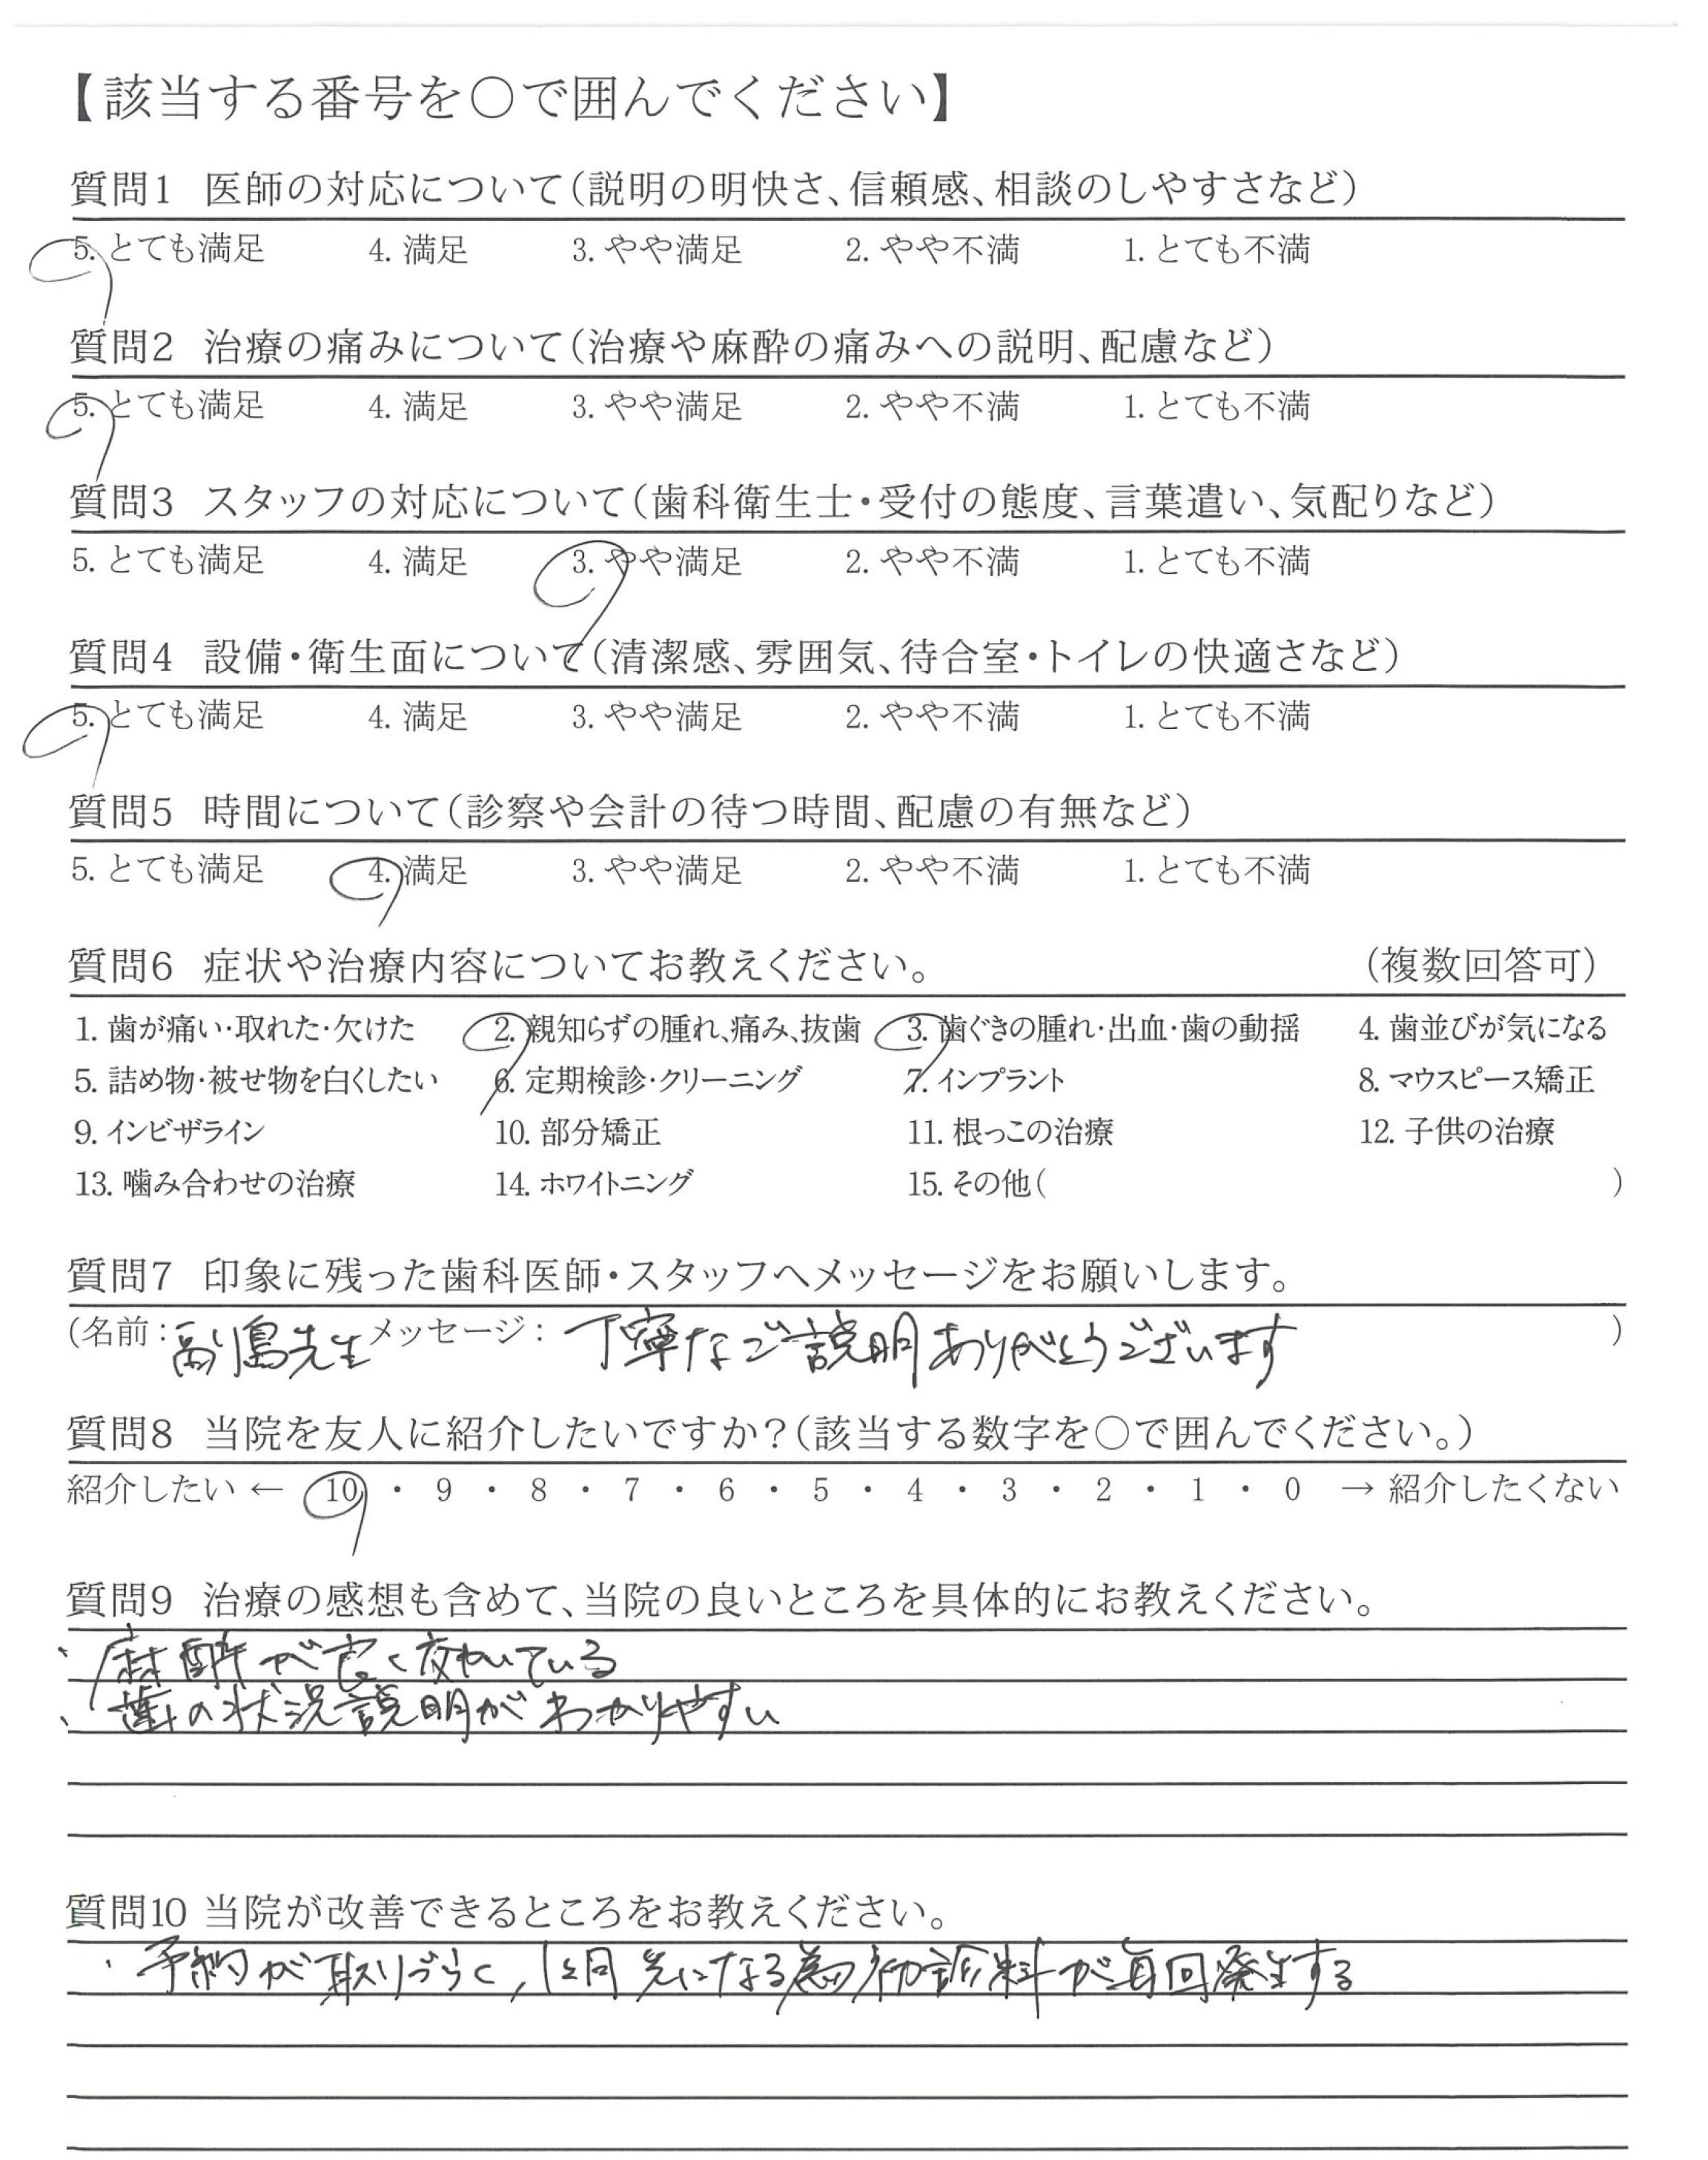 【該当する番号を○で囲んでください】
質問1 医師の対応について(説明の明快さ、信頼感、相談のしやすさなど)
5. とても満足 4. 満足 3. やや満足 2. やや不満 1. とても不満
質問2 治療の痛みについて(治療や麻酔の痛みへの説明、配慮など)
5. とても満足 4. 満足 3. やや満足 2. やや不満 1. とても不満
質問3 スタッフの対応について(歯科衛生士・受付の態度、言葉遣い、気配りなど)
5. とても満足 4. 満足 3. やや満足 2. やや不満 1. とても不満
質問4 設備・衛生面について(清潔感、雰囲気、待合室・トイレの快適さなど)
5. とても満足 4. 満足 3. やや満足 2. やや不満 1. とても不満
質問5 時間について(診察や会計の待つ時間、配慮の有無など)
5. とても満足 4. 満足 3. やや満足 2. やや不満 1. とても不満
質問6 症状や治療内容についてお教えください。 (複数回答可)
1. 歯が痛い・取れた・欠けた 2. 親知らずの腫れ、痛み、抜歯 3. 歯ぐきの腫れ・出血・歯の動揺 4. 歯並びが気になる
5. 詰め物・被せ物を白くしたい 6. 定期検診・クリーニング 7. インプラント 8. マウスピース矯正
9. インビザライン 10. 部分矯正 11. 根っこの治療 12. 子供の治療
13. 噛み合わせの治療 14. ホワイトニング 15. その他( )
質問7 印象に残った歯科医師・スタッフへメッセージをお願いします。
(名前: 副島先生 メッセージ: 丁寧なご説明ありがとうございます )
質問8 当院を友人に紹介したいですか?(該当する数字を○で囲んでください。)
紹介したい ← 10 ・ 9 ・ 8 ・ 7 ・ 6 ・ 5 ・ 4 ・ 3 ・ 2 ・ 1 ・ 0 → 紹介したくない
質問9 治療の感想も含めて、当院の良いところを具体的にお教えください。
・麻酔が良く効いている
・歯の状況説明がわかりやすい
質問10 当院が改善できるところをお教えください。
・予約が取りづらく, 先になる為初診料が毎回発生する